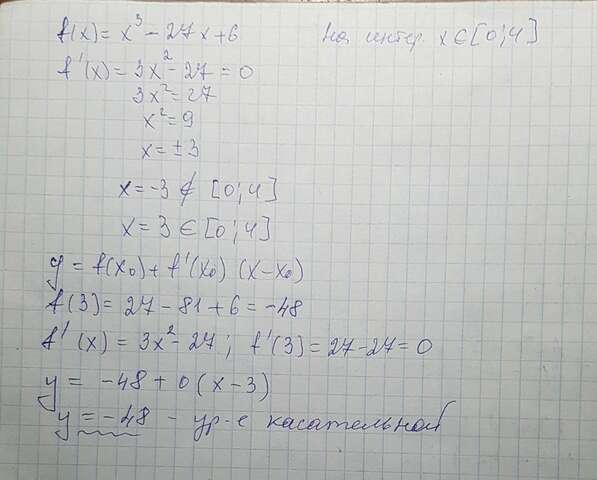 f(x) = x³ - 27x + 6 на интер. x ∈ [0; 4]
f'(x) = 3x² - 27 = 0
3x² = 27
x² = 9
x = ± 3
x = -3 ∉ [0; 4]
x = 3 ∈ [0; 4]
y = f(x₀) + f'(x₀) (x - x₀)
f(3) = 27 - 81 + 6 = -48
f'(x) = 3x² - 27; f'(3) = 27 - 27 = 0
y = -48 + 0 (x - 3)
y = -48 - ур-е касательной